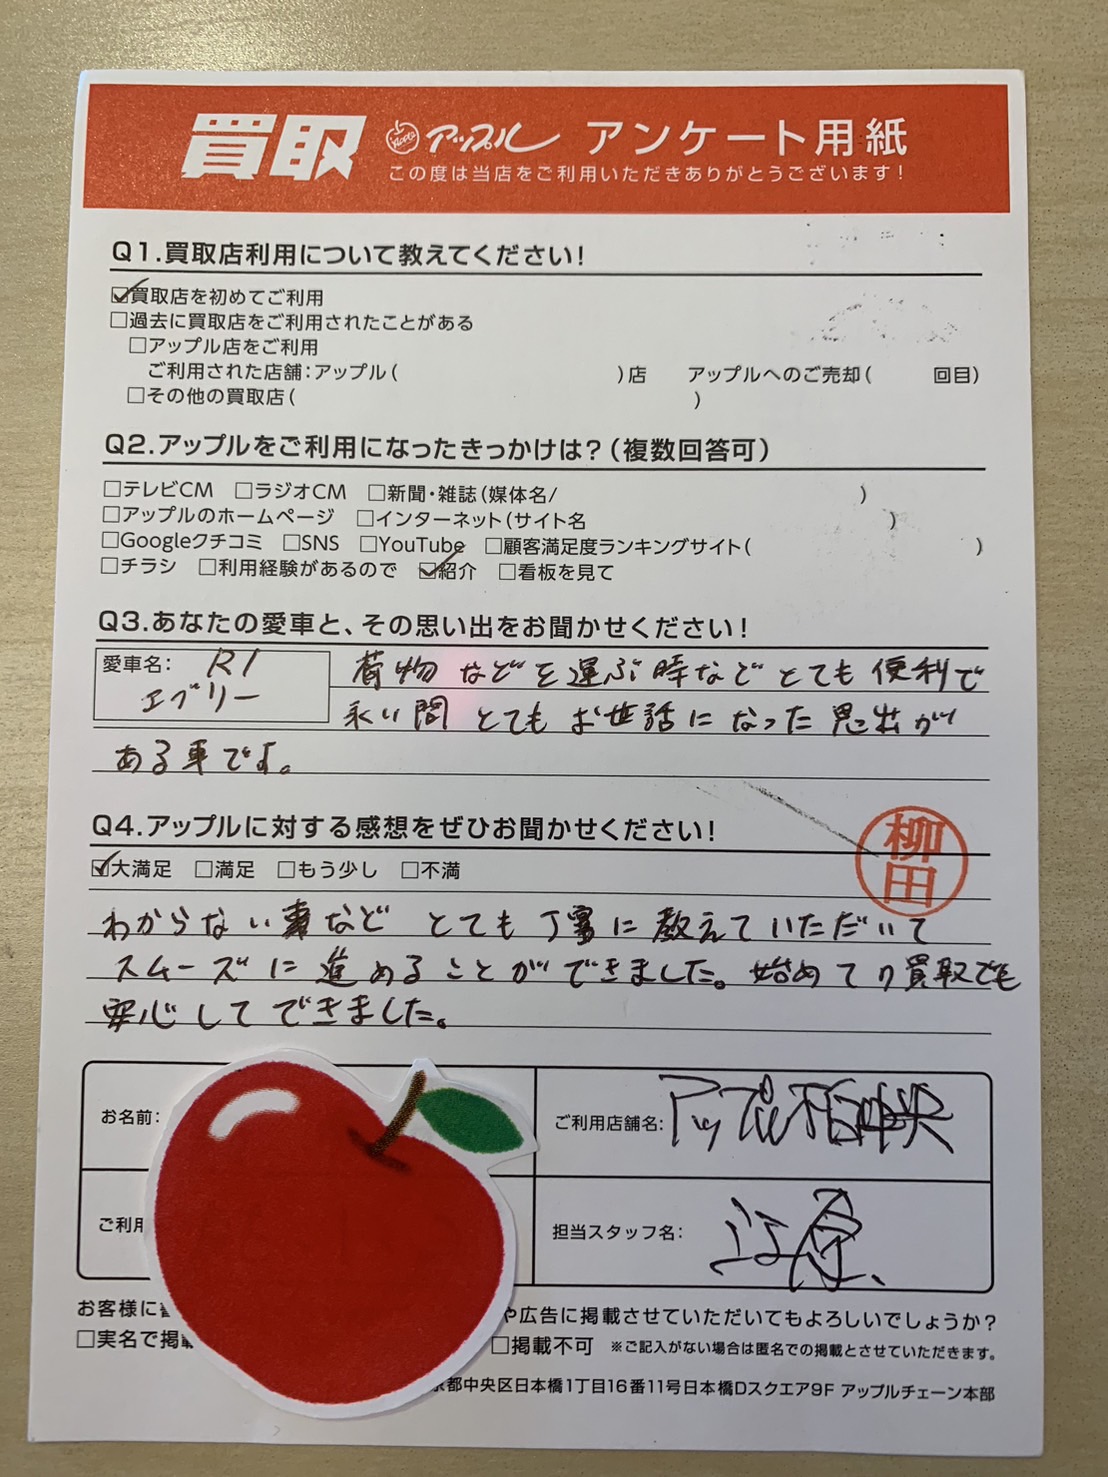 買取 アップル アンケート用紙
この度は当店をご利用いただきありがとうございます!
Q1.買取店利用について教えてください!
☑買取店を初めてご利用
□過去に買取店をご利用されたことがある
□アップル店をご利用
ご利用された店舗:アップル( )店 アップルへのご売却( 回目)
□その他の買取店( )
Q2.アップルをご利用になったきっかけは?(複数回答可)
□テレビCM □ラジオCM □新聞・雑誌(媒体名/ )
□アップルのホームページ □インターネット(サイト名 )
□Googleクチコミ □SNS □YouTube □顧客満足度ランキングサイト( )
□チラシ □利用経験があるので ☑紹介 □看板を見て
Q3.あなたの愛車と、その思い出をお聞かせください!
愛車名: R1
エブリー
荷物などを運ぶ時などとても便利で
永い間とてもお世話になった思出が
ある車です。
Q4.アップルに対する感想をぜひお聞かせください!
柳田
☑大満足 □満足 □もう少し □不満
わからない事などとても丁寧に教えていただいて
スムーズに進めることができました。始めての買取でも
安心してできました。
お名前: ご利用店舗名: アップル相模中央
ご利用 担当スタッフ名:
お客様に や広告に掲載させていただいてもよろしいでしょうか?
□実名で掲載 □掲載不可 ※ご記入がない場合は匿名での掲載とさせていただきます。
京都中央区日本橋1丁目16番11号日本橋Dスクエア9F アップルチェーン本部